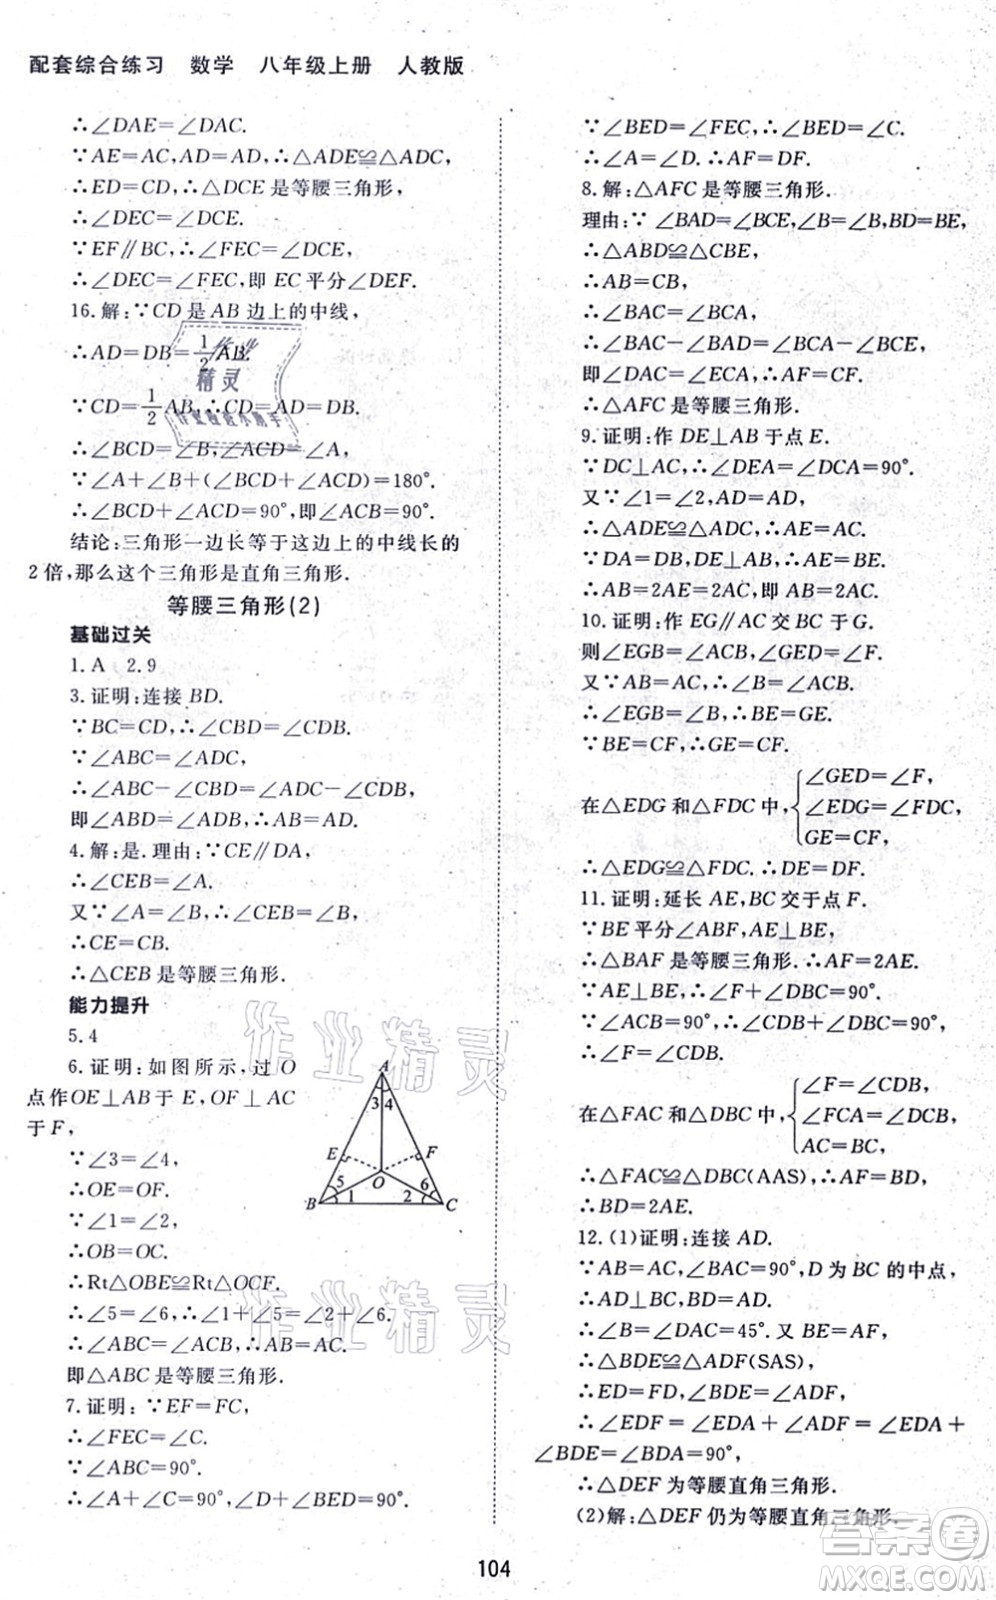 配套综合练习 数学 八年级上册 人教版
∴∠DAE=∠DAC.
∵AE=AC,AD=AD,∴△ADE≌△ADC,
∴ED=CD,∴△DCE是等腰三角形,
∴∠DEC=∠DCE.
∵EF∥BC,∴∠FEC=∠DCE,
∴∠DEC=∠FEC,即EC平分∠DEF.
16.解:∵CD是AB边上的中线,
∴AD=DB=1/2AB.
∵CD=1/2AB,∴CD=AD=DB.
∴∠BCD=∠B,∠ACD=∠A,
∵∠A+∠B+(∠BCD+∠ACD)=180°,
∴∠BCD+∠ACD=90°,即∠ACB=90°.
结论:三角形一边长等于这边上的中线长的
2倍,那么这个三角形是直角三角形.
等腰三角形(2)
基础过关
1.A 2.9
3.证明:连接BD.
∵BC=CD,∴∠CBD=∠CDB.
∵∠ABC=∠ADC,
∴∠ABC-∠CBD=∠ADC-∠CDB,
即∠ABD=∠ADB,∴AB=AD.
4.解:是.理由:∵CE∥DA,
∴∠CEB=∠A.
又∵∠A=∠B,∴∠CEB=∠B,
∴CE=CB.
∴△CEB是等腰三角形.
能力提升
5.4
6.证明:如图所示,过O
点作OE⊥AB于E,OF⊥AC
于F,
∵∠3=∠4,
∴OE=OF.
∵∠1=∠2,
∴OB=OC.
∴Rt△OBE≌Rt△OCF.
∴∠5=∠6,∴∠1+∠5=∠2+∠6.
∴∠ABC=∠ACB,∴AB=AC.
即△ABC是等腰三角形.
A
3 4
E F
5 O 6
B 1 2 C
7.证明:∵EF=FC,
∴∠FEC=∠C.
∵∠ABC=90°.
∴∠A+∠C=90°,∠D+∠BED=90°.
∵∠BED=∠FEC,∴∠BED=∠C.
∴∠A=∠D.∴AF=DF.
8.解:△AFC是等腰三角形.
理由:∵∠BAD=∠BCE,∠B=∠B,BD=BE,
∴△ABD≌△CBE,
∴AB=CB,
∴∠BAC=∠BCA,
∴∠BAC-∠BAD=∠BCA-∠BCE,
即∠DAC=∠ECA,∴FA=FC,
∴△AFC是等腰三角形.
9.证明:作DE⊥AB于点E.
∵DC⊥AC,∴∠DEA=∠DCA=90°.
又∵∠1=∠2,AD=AD,
∴△ADE≌△ADC,∴AE=AC.
∵DA=DB,DE⊥AB,∴AE=BE.
∴AB=2AE=2AC,即AB=2AC.
10.证明:作EG∥AC交BC于G.
则∠EGB=∠ACB,∠GED=∠F.
又∵AB=AC,∴∠B=∠ACB.
∴∠EGB=∠B,∴BE=GE.
∵BE=CF,∴GE=CF.
∠GED=∠F,
在△EDG和△FDC中,∠EDG=∠FDC,
GE=CF,
∴△EDG≌△FDC.∴DE=DF.
11.证明:延长AE,BC交于点F.
∵BE平分∠ABF,AE⊥BE,
∴△BAF是等腰三角形.∴AF=2AE.
∵AE⊥BE,∴∠F+∠DBC=90°.
∵∠ACB=90°,∴∠CDB+∠DBC=90°.
∴∠F=∠CDB.
∠F=∠CDB,
在△FAC和△DBC中,∠FCA=∠DCB,
AC=BC,
∴△FAC≌△DBC(AAS),∴AF=BD,
∴BD=2AE.
12.(1)证明:连接AD.
∵AB=AC,∠BAC=90°,D为BC的中点,
∴AD⊥BC,BD=AD.
∴∠B=∠DAC=45°.又BE=AF,
∴△BDE≌△ADF(SAS).
∴ED=FD,∠BDE=∠ADF,
∴∠EDF=∠EDA+∠ADF=∠EDA+
∠BDE=∠BDA=90°.
∴△DEF为等腰直角三角形.
(2)解:△DEF仍为等腰直角三角形.
104
作业精灵
作业精灵
作业
精灵
作业检查小助手
答案卷
MXQE.COM